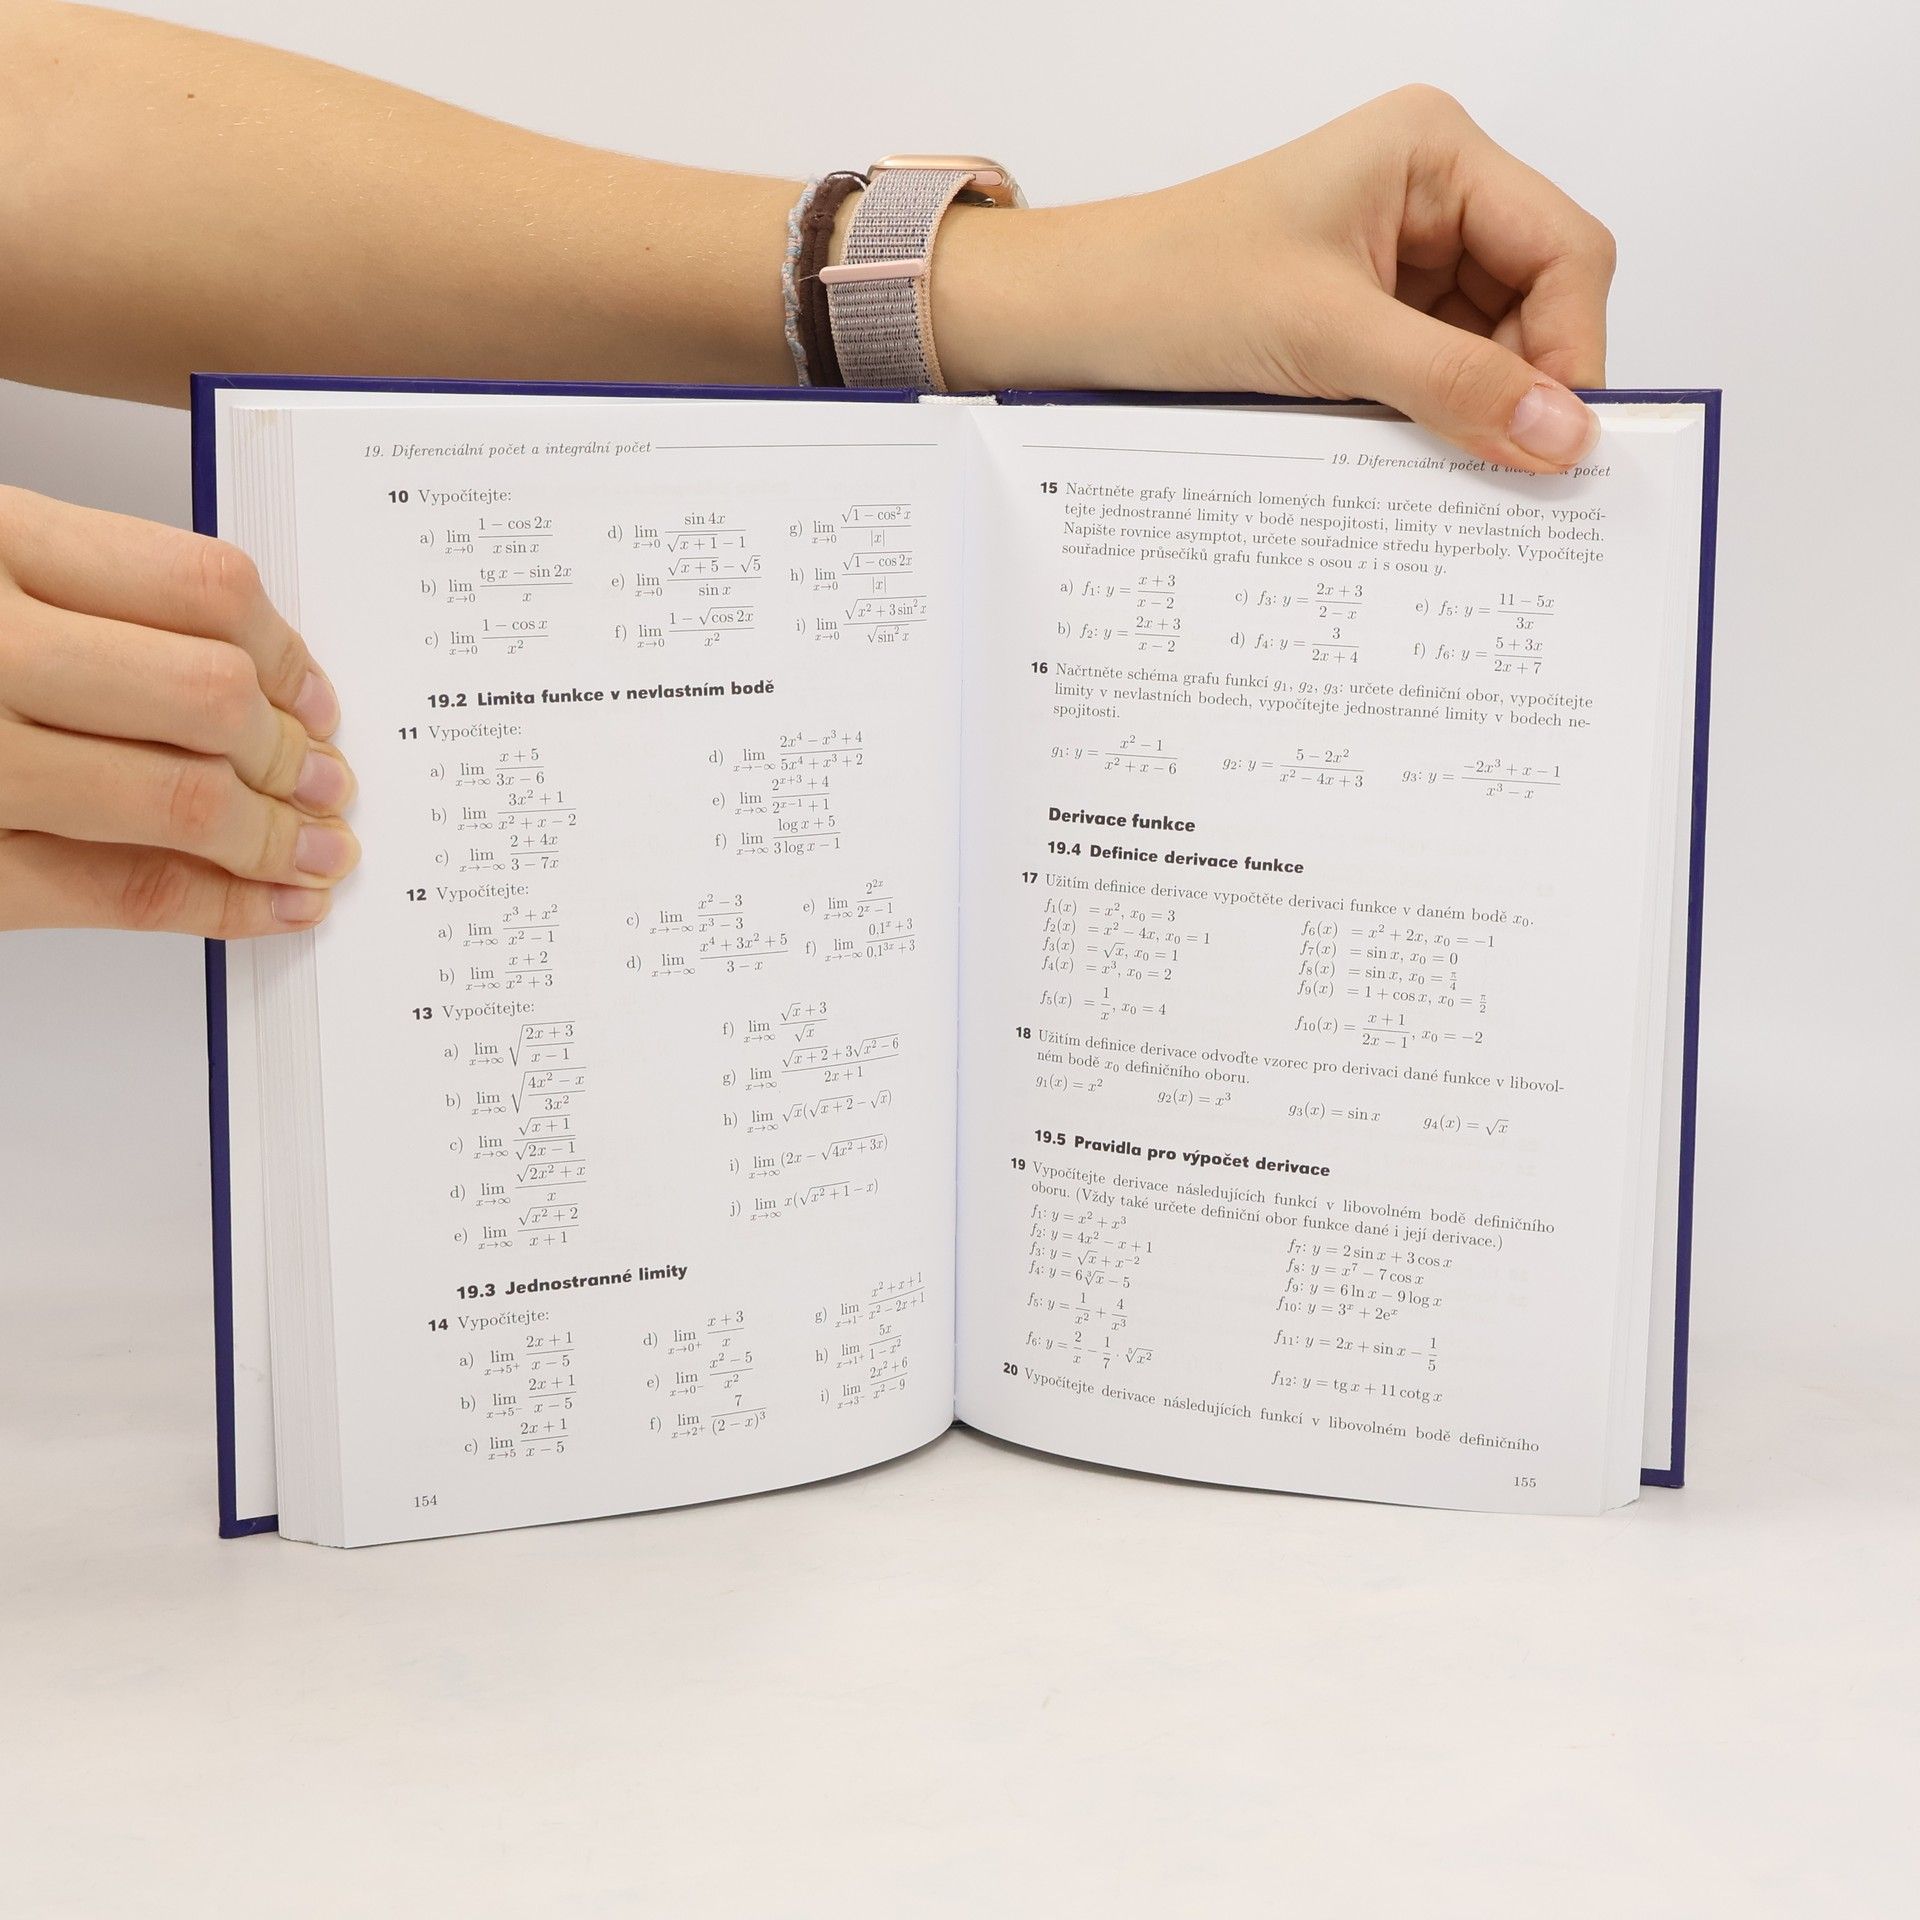 19. Diferenciální počet a integrální počet
10 Vypočítejte:
a) lim x→0 (1 − cos 2x)/(x sin x)
d) lim x→0 (sin 4x)/(√(x + 1) − 1)
g) lim x→0 √(1 − cos² x)/|x|
b) lim x→0 (tg x − sin 2x)/x
e) lim x→0 (√(x + 5) − √5)/(sin x)
h) lim x→0 √(1 − cos 2x)/|x|
c) lim x→0 (1 − cos x)/x²
f) lim x→0 (1 − √(cos 2x))/x²
i) lim x→0 √(x² + 3 sin² x)/√(sin² x)
19.2 Limita funkce v nevlastním bodě
11 Vypočítejte:
a) lim x→∞ (x + 5)/(3x − 6)
d) lim x→−∞ (2x⁴ − x³ + 4)/(5x⁴ + x³ + 2)
b) lim x→∞ (3x² + 1)/(x² + x − 2)
e) lim x→∞ (2^(x+3) + 4)/(2^(x−1) + 1)
c) lim x→−∞ (2 + 4x)/(3 − 7x)
f) lim x→∞ (log x + 5)/(3 log x − 1)
12 Vypočítejte:
a) lim x→∞ (x³ + x²)/(x² − 1)
c) lim x→−∞ (x² − 3)/(x³ − 3)
e) lim x→∞ 2^(2x)/(2^x − 1)
b) lim x→∞ (x + 2)/(x² + 3)
d) lim x→−∞ (x⁴ + 3x² + 5)/(3 − x)
f) lim x→−∞ (0,1^x + 3)/(0,1^(3x) + 3)
13 Vypočítejte:
a) lim x→∞ √((2x + 3)/(x − 1))
f) lim x→∞ (√x + 3)/√x
b) lim x→∞ √((4x² − x)/(3x²))
g) lim x→∞ (√(x + 2) + 3√(x² − 6))/(2x + 1)
c) lim x→∞ √(x + 1)/√(2x − 1)
h) lim x→∞ √x(√(x + 2) − √x)
d) lim x→∞ √(2x² + x)/x
i) lim x→∞ (2x − √(4x² + 3x))
e) lim x→∞ √(x² + 2)/(x + 1)
j) lim x→∞ x(√(x² + 1) − x)
19.3 Jednostranné limity
14 Vypočítejte:
a) lim x→5⁺ (2x + 1)/(x − 5)
d) lim x→0⁺ (x + 3)/x
g) lim x→1⁻ (x² + x + 1)/(x² − 2x + 1)
b) lim x→5⁻ (2x + 1)/(x − 5)
e) lim x→0⁻ (x² − 5)/x²
h) lim x→1⁺ 5x/(1 − x²)
c) lim x→5 (2x + 1)/(x − 5)
f) lim x→2⁺ 7/(2 − x)³
i) lim x→3⁻ (2x² + 6)/(x² − 9)
154
19. Diferenciální počet a počet
15 Načrtněte grafy lineárních lomených funkcí: určete definiční obor, vypočí-
tejte jednostranné limity v bodě nespojitosti, limity v nevlastních bodech.
Napište rovnice asymptot, určete souřadnice středu hyperboly. Vypočítejte
souřadnice průsečíků grafu funkce s osou x i s osou y.
a) f₁: y = (x + 3)/(x − 2)
c) f₃: y = (2x + 3)/(2 − x)
e) f₅: y = (11 − 5x)/(3x)
b) f₂: y = (2x + 3)/(x − 2)
d) f₄: y = 3/(2x + 4)
f) f₆: y = (5 + 3x)/(2x + 7)
16 Načrtněte schéma grafu funkcí g₁, g₂, g₃: určete definiční obor, vypočítejte
limity v nevlastních bodech, vypočítejte jednostranné limity v bodech ne-
spojitosti.
g₁: y = (x² − 1)/(x² + x − 6)
g₂: y = (5 − 2x²)/(x² − 4x + 3)
g₃: y = (−2x³ + x − 1)/(x³ − x)
Derivace funkce
19.4 Definice derivace funkce
17 Užitím definice derivace vypočtěte derivaci funkce v daném bodě x₀.
f₁(x) = x², x₀ = 3
f₂(x) = x² − 4x, x₀ = 1
f₃(x) = √x, x₀ = 1
f₄(x) = x³, x₀ = 2
f₅(x) = 1/x, x₀ = 4
f₆(x) = x² + 2x, x₀ = −1
f₇(x) = sin x, x₀ = 0
f₈(x) = sin x, x₀ = π/4
f₉(x) = 1 + cos x, x₀ = π/2
f₁₀(x) = (x + 1)/(2x − 1), x₀ = −2
18 Užitím definice derivace odvoďte vzorec pro derivaci dané funkce v libovol-
ném bodě x₀ definičního oboru.
g₁(x) = x² g₂(x) = x³ g₃(x) = sin x g₄(x) = √x
19.5 Pravidla pro výpočet derivace
19 Vypočítejte derivace následujících funkcí v libovolném bodě definičního
oboru. (Vždy také určete definiční obor funkce dané i její derivace.)
f₁: y = x² + x³
f₂: y = 4x² − x + 1
f₃: y = √x + x⁻²
f₄: y = 6∛x − 5
f₅: y = 1/x² + 4/x³
f₆: y = 2/x − 1/7 · ⁵√x²
f₇: y = 2 sin x + 3 cos x
f₈: y = x⁷ − 7 cos x
f₉: y = 6 ln x − 9 log x
f₁₀: y = 3^x + 2e^x
f₁₁: y = 2x + sin x − 1/5
f₁₂: y = tg x + 11 cotg x
20 Vypočítejte derivace následujících funkcí v libovolném bodě definičního
155